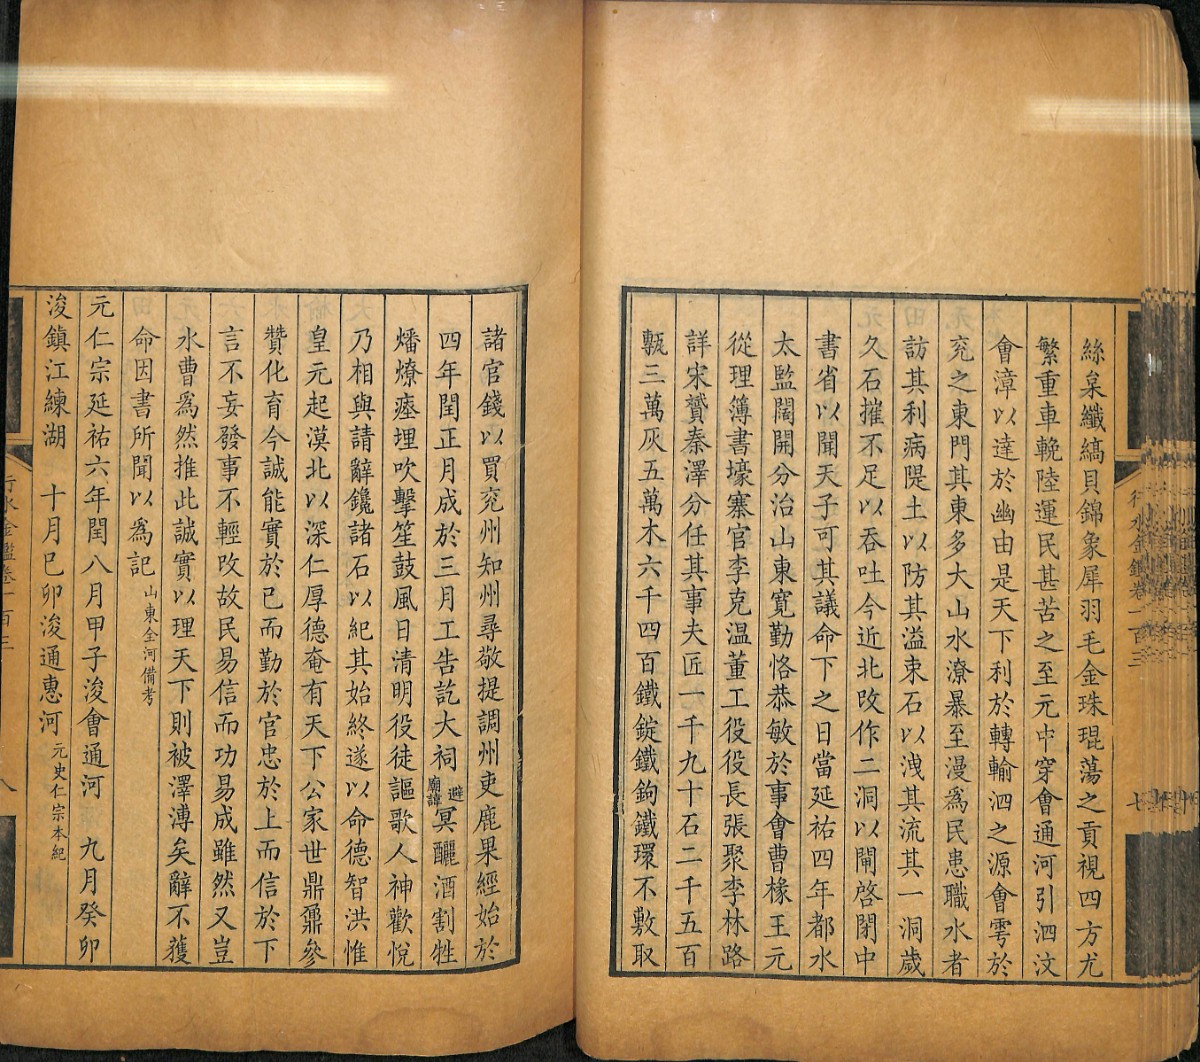 絲枲纖縞貝錦象犀羽毛金珠琨蕩之貢視四方尤
繁重車輓陸運民甚苦之至元中穿會通河引泗汶
會漳以達於幽由是天下利於轉輸泗之源會雩於
兗之東門其東多大山水潦暴至漫爲民患職水者
訪其利病隄土以防其溢束石以洩其流其一洞歲
久石摧不足以吞吐今近北改作二洞以閘啓閉中
書省以聞天子可其議命下之日當延祐四年都水
太監闊開分治山東寬勤恪恭敏於事會曹椽王元
從理簿書壕寨官李克溫董工役役長張聚李林路
詳宋贇秦澤分任其事夫匠一千九十石二千五百
甎三萬灰五萬木六千四百鐵錠鐵鉤鐵環不敷取
行水金鑑卷一百三
七
諸官錢以買兗州知州尋敬提調州吏鹿果經始於
四年閏正月成於三月工告訖大祠避廟諱冥釃酒割牲
燔燎瘞埋吹擊笙鼓風日清明役徒謳歌人神歡悅
乃相與請辭鑱諸石以紀其始終遂以命德智洪惟
皇元起漠北以深仁厚德奄有天下公家世鼎鼐參
贊化育今誠能實於已而勤於官忠於上而信於下
言不妄發事不輕改故民易信而功易成雖然又豈
水曹爲然推此誠實以理天下則被澤溥矣辭不獲
命因書所聞以爲記 山東金河備考
元仁宗延祐六年閏八月甲子浚會通河 九月癸卯
浚鎮江練湖 十月巳卯浚通惠河 元史仁宗本紀
行水金鑑卷一百三
八